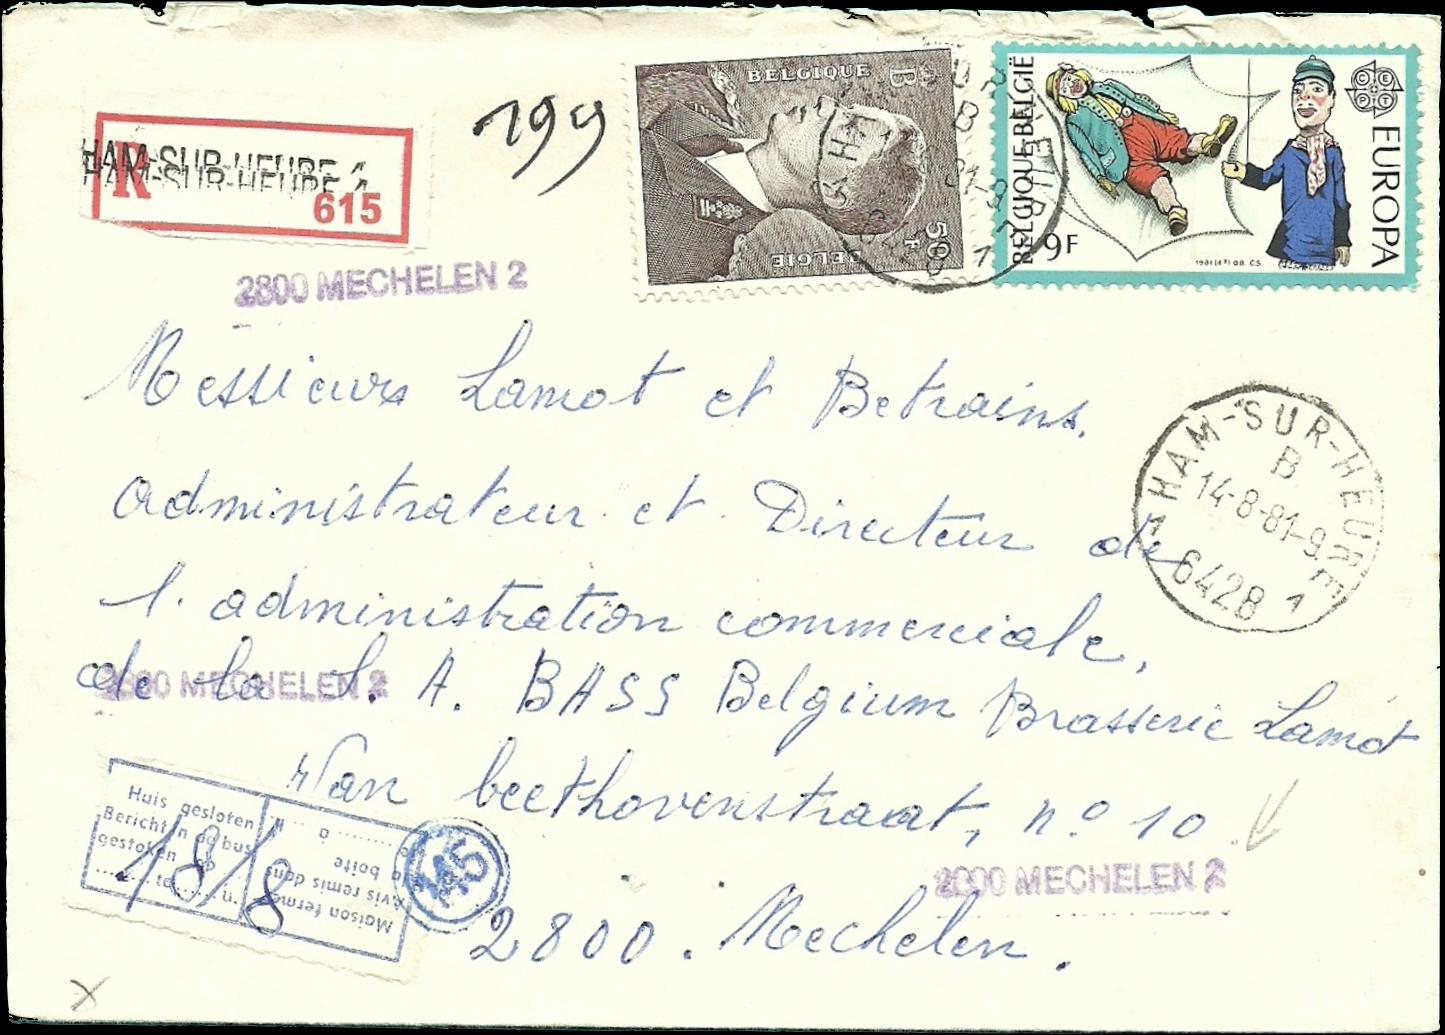 R
HAM-SUR-HEURE 1
HAM-SUR-HEURE 1
615
199
BELGIQUE
B
50 F
BELGIË
BELGIQUE-BELGIË
9F
1981 (4B) OB. C.S.
CEPT
EUROPA
2800 MECHELEN 2
Messieurs Lamot et Betrains.
administrateur et Directeur de
l'administration commerciale,
de la S. A. BASS Belgium Brasserie Lamot
Van beethovenstraat, n° 10
2800. Mechelen.
HAM-SUR-HEURE
B
14-8-81-9
1 6428 1
2800 MECHELEN 2
2800 MECHELEN 2
Huis gesloten
Bericht in de bus
gestoken op
te u.
Maison fermée
Avis remis dans
la boîte
le
à h
18/8
145